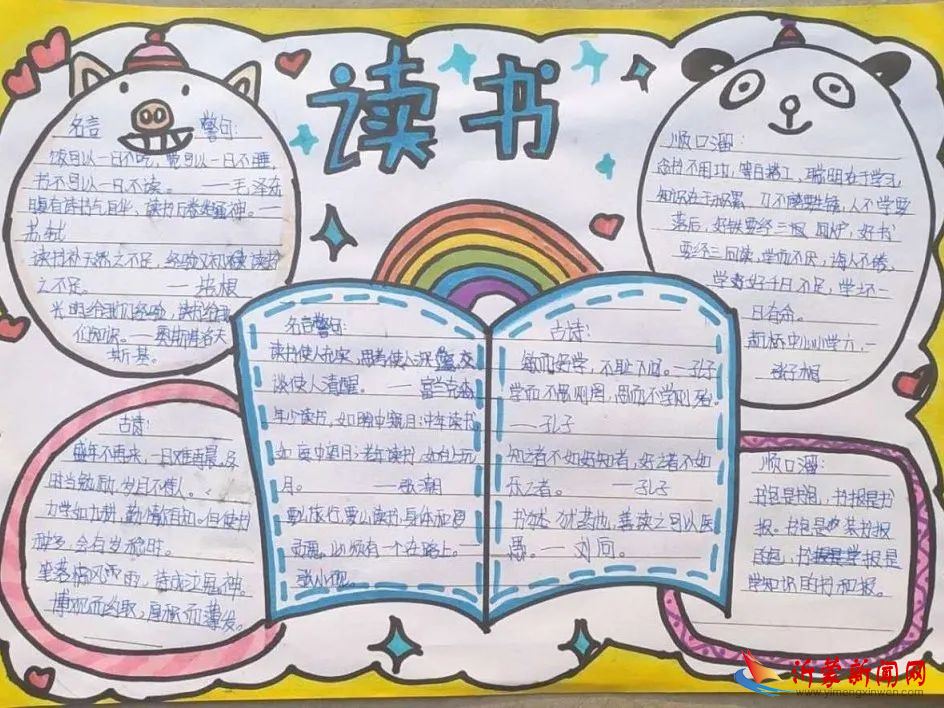 读书
名言
警句:
饭可以一日不吃,觉可以一日不睡,
书不可以一日不读。 ——毛泽东
腹有诗书气自华,读书万卷始通神。—
苏轼
读书补天然之不足,经验又补读书
之不足。 ——培根
光明给我们经验,读书给我
们知识。——奥斯特洛夫
斯基。
顺口溜:
念书不用功,等白搭工,聪明在于学习,
知识在于积累,刀不磨要生锈,人不学要
落后,好铁要经三回炉,好书
要经三回读,学而不厌,诲人不倦,
学好千日不足,学坏一
日有余。
名言警句:
读书使人充实,思考使人深邃,交
谈使人清醒。 ——富兰克林
年少读书,如隙中窥月;中年读书
如庭中望月;老年读书,如台上玩
月。 ——张潮
要么旅行,要么读书,身体和
灵魂,必须有一个在路上。
古诗:
敏而好学,不耻下问。—孔子
学而不思则罔,思而不学则殆。
——孔子
知之者不如好知者,好之者不如
乐之者。 ——孔子
书犹药也,善读之可以医
愚。——刘向。
古诗:
盛年不再来,一日难再晨。及
时当勉励,岁月不待人。
力学如力耕,勤惰尔自知。但使书
种多,会有岁稔时。
笔落惊风雨,诗成泣鬼神。
博观而约取,厚积而薄发。
顺口溜:
书包是书包,书报是书
报。书包是要装书报
的包,书报是学报是
学知识的书和报。
沂蒙新闻网
www.yimengxinwen.com